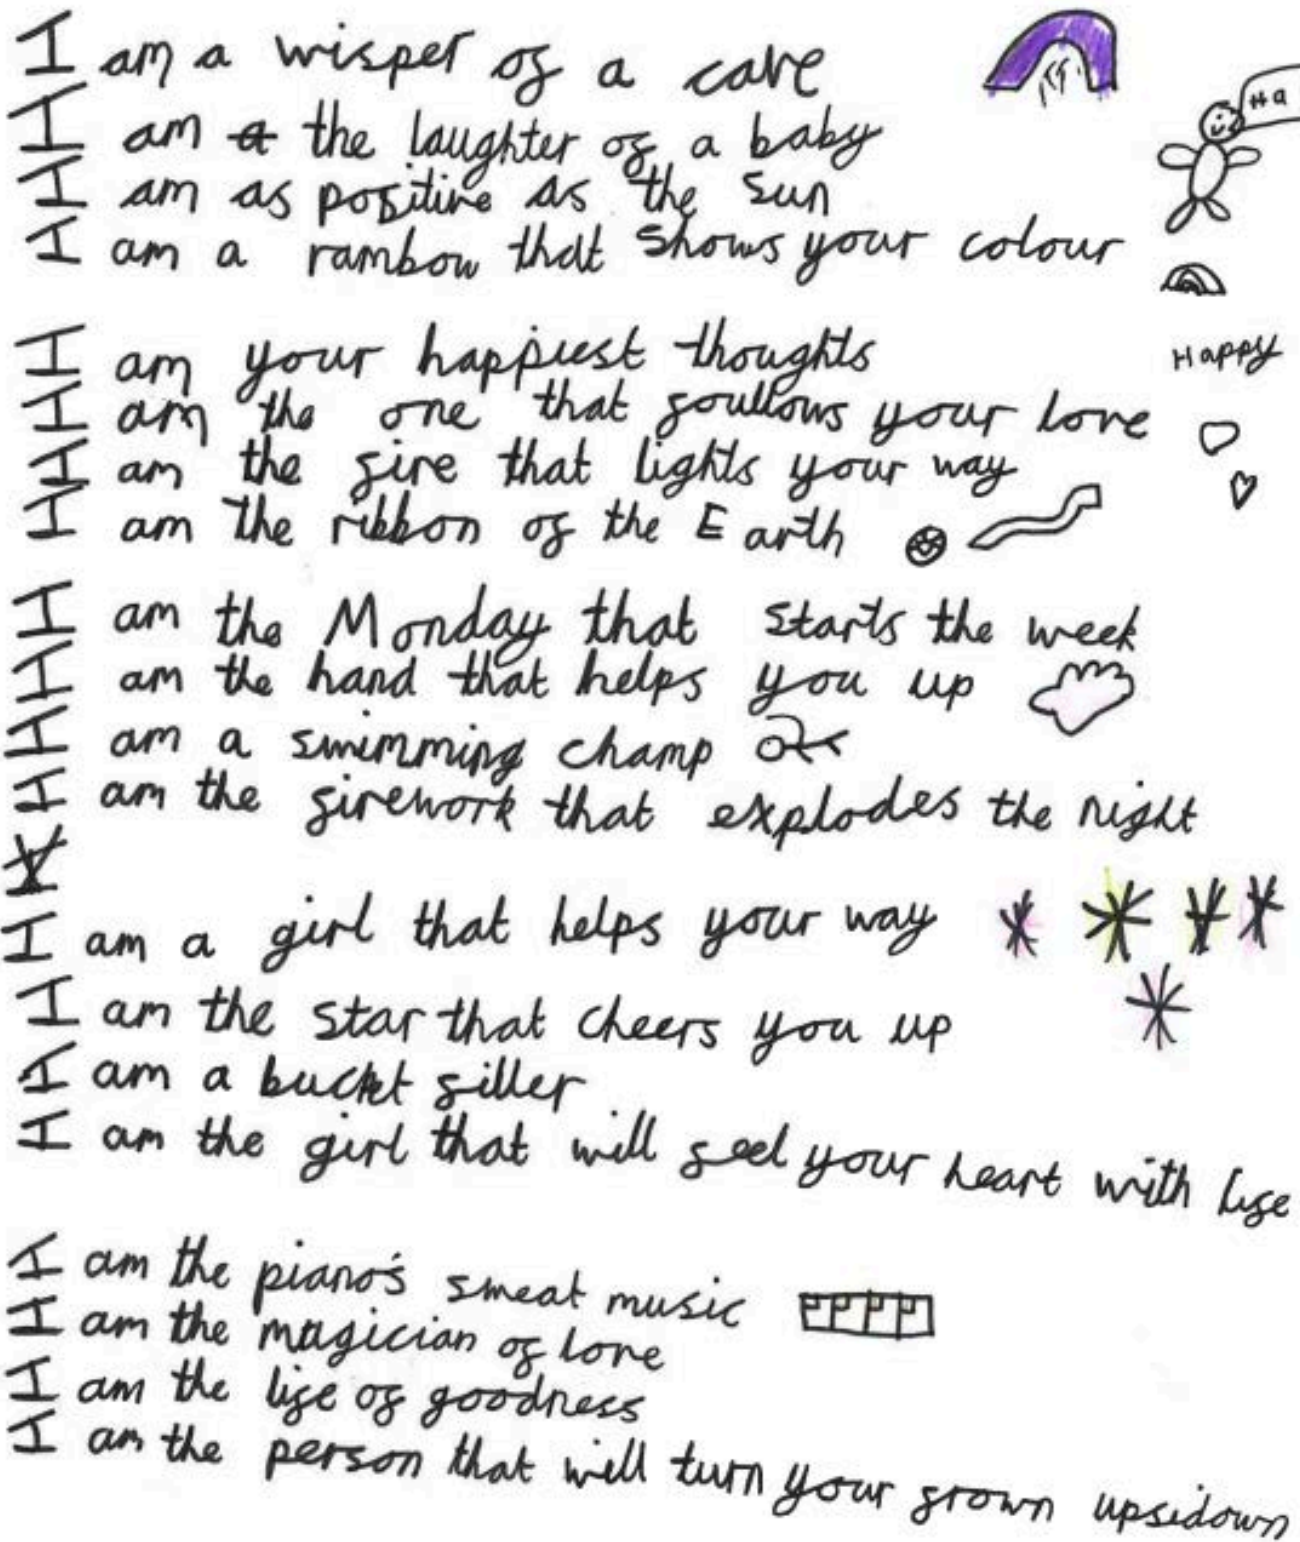 I am a wisper of a cave
Ha
I am a the laughter of a baby
I am as positive as the sun
I am a rainbow that shows your colour
I am your happiest thoughts
Happy
I am the one that foullows your love
I am the fire that lights your way
I am the ribbon of the Earth
I am the Monday that starts the week
I am the hand that helps you up
I am a swimming champ
I am the firework that explodes the night
I am a girl that helps your way
I am the star that cheers you up
I am a bucket filler
I am the girl that will feel your heart with life
I am the piano's sweat music
I am the magician of love
I am the life of goodness
I am the person that will turn your frown upsidown